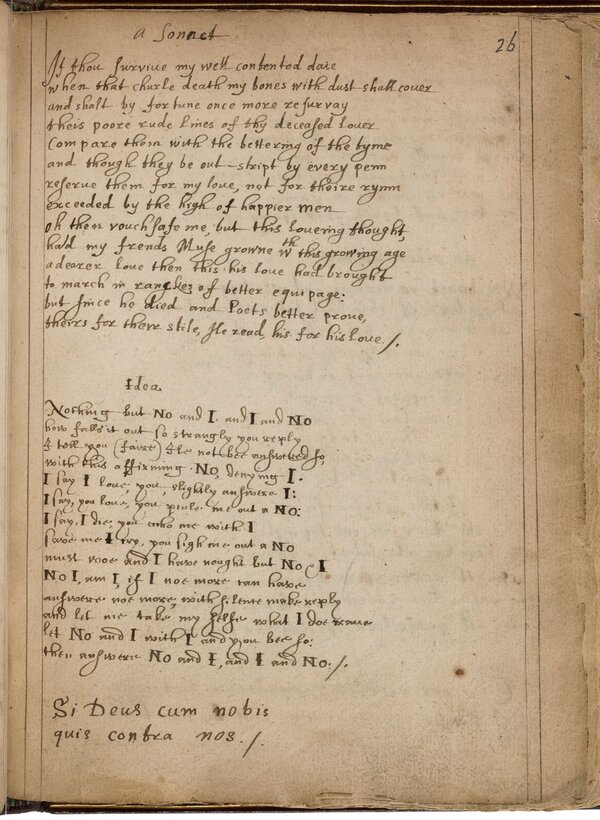 a Sonnet
26
If thou survive my well contented daie
when that churle death my bones with dust shall couer
and shalt by fortune once more resurvay
theis poore rude lines of thy deceased lover
Compare them with the bettering of the tyme
and though they be out-stript by every penn
reserve them for my love, not for theire rym
exceeded by the high of happier men
oh then vouchsafe me, but this loveing thought,
had my frends Muse growne wth this growing age
a dearer love then this his love had brought
to march in ranckes of better equipage:
but since he died and Poets better prove,
theirs for their stile, Ile read, his for his love./.
Idea
Nothing but No and I. and I and No
how falls it out so strangly you reply
I tell you (faire) Ile not bee answered so,
with this affirming No, denying I.
I say I love you, slightly answere I:
I say, you love, you pule me out a No:
I say, I die, you echo me with I
save me I cry, you sigh me out a No
must woe and I have nought but No & I
No I, am I, if I noe more can have
answere noe more, with silence make reply
and let me take my selfe what I doe crave
let No and I with I and you bee so:
then answere No and I, and I and No./.
Si Deus cum nobis
quis contra nos./.